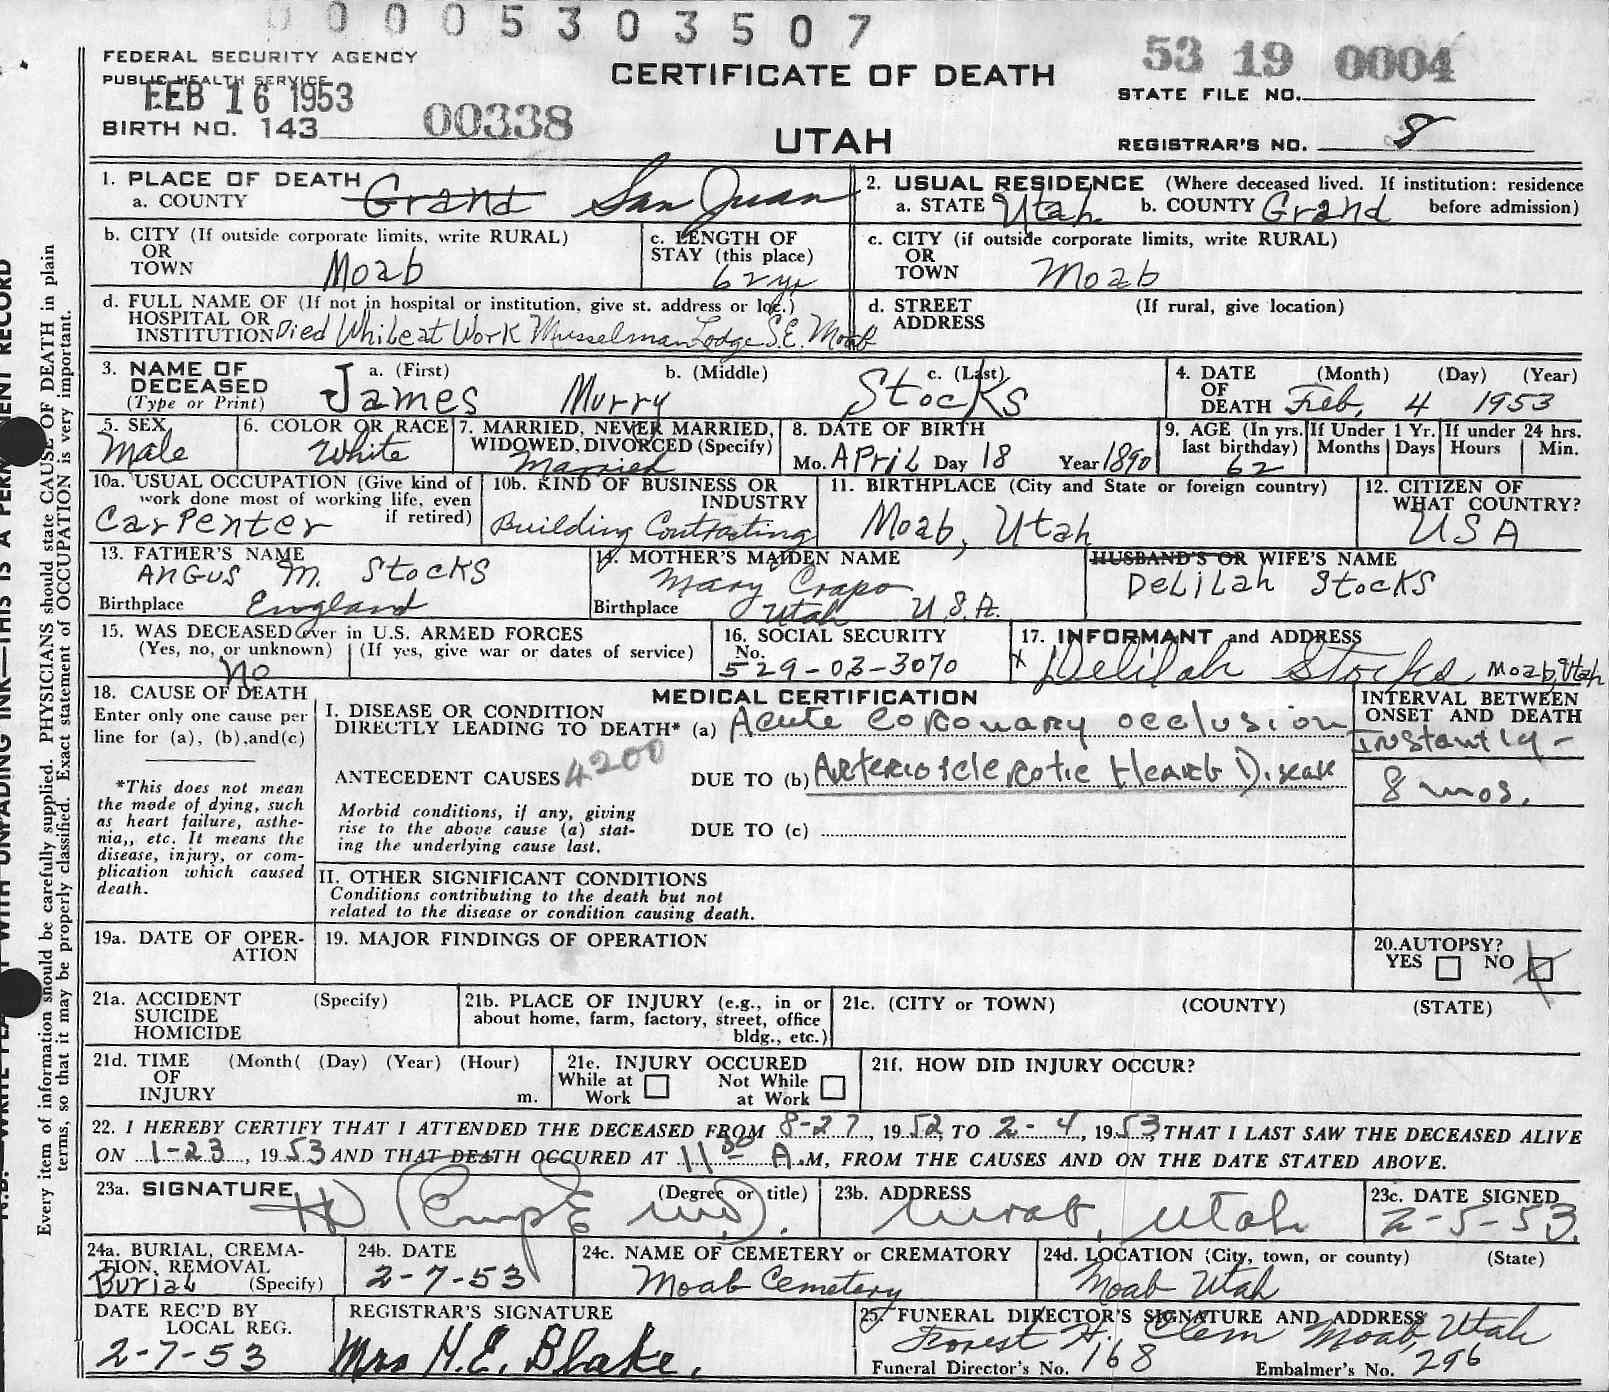 0 0 0 0 5 3 0 3 5 0 7
FEDERAL SECURITY AGENCY
PUBLIC HEALTH SERVICE
FEB 16 1953
BIRTH NO. 143
00338
CERTIFICATE OF DEATH
UTAH
53 19 0004
STATE FILE NO.
REGISTRAR'S NO. 8
1. PLACE OF DEATH
a. COUNTY Grand San Juan
2. USUAL RESIDENCE (Where deceased lived. If institution: residence before admission)
a. STATE Utah b. COUNTY Grand
b. CITY (If outside corporate limits, write RURAL)
OR
TOWN Moab
c. LENGTH OF
STAY (this place)
62 yr
c. CITY (if outside corporate limits, write RURAL)
OR
TOWN Moab
d. FULL NAME OF (If not in hospital or institution, give st. address or loc.)
HOSPITAL OR
INSTITUTION Died While at Work Musselman Lodge S.E. Moab
d. STREET (If rural, give location)
ADDRESS
3. NAME OF
DECEASED
(Type or Print)
a. (First) b. (Middle) c. (Last)
James Murry Stocks
4. DATE (Month) (Day) (Year)
OF
DEATH Feb, 4 1953
5. SEX
Male
6. COLOR OR RACE
White
7. MARRIED, NEVER MARRIED,
WIDOWED, DIVORCED (Specify)
Married
8. DATE OF BIRTH
Mo. April Day 18 Year 1890
9. AGE (In yrs.
last birthday)
62
If Under 1 Yr.
Months Days
If under 24 hrs.
Hours Min.
10a. USUAL OCCUPATION (Give kind of
work done most of working life, even
if retired)
Carpenter
10b. KIND OF BUSINESS OR
INDUSTRY
Building Contracting
11. BIRTHPLACE (City and State or foreign country)
Moab, Utah
12. CITIZEN OF
WHAT COUNTRY?
USA
13. FATHER'S NAME
Angus M. Stocks
Birthplace England
14. MOTHER'S MAIDEN NAME
Mary Crapo
Birthplace Utah U.S.A.
HUSBAND'S OR WIFE'S NAME
Delilah Stocks
15. WAS DECEASED ever in U.S. ARMED FORCES
(Yes, no, or unknown) (If yes, give war or dates of service)
No
16. SOCIAL SECURITY
No.
529-03-3070
17. INFORMANT and ADDRESS
x Delilah Stocks Moab, Utah
18. CAUSE OF DEATH
Enter only one cause per
line for (a), (b), and (c)
*This does not mean
the mode of dying, such
as heart failure, asthe-
nia,, etc. It means the
disease, injury, or com-
plication which caused
death.
MEDICAL CERTIFICATION
I. DISEASE OR CONDITION
DIRECTLY LEADING TO DEATH* (a) Acute Coronary occlusion
ANTECEDENT CAUSES 4200
DUE TO (b) Arteriosclerotic Heart Disease
Morbid conditions, if any, giving
rise to the above cause (a) stat-
ing the underlying cause last.
DUE TO (c)
INTERVAL BETWEEN
ONSET AND DEATH
Instantly -
8 mos.
II. OTHER SIGNIFICANT CONDITIONS
Conditions contributing to the death but not
related to the disease or condition causing death.
19a. DATE OF OPER-
ATION
19. MAJOR FINDINGS OF OPERATION
20. AUTOPSY?
YES NO X
21a. ACCIDENT (Specify)
SUICIDE
HOMICIDE
21b. PLACE OF INJURY (e.g., in or
about home, farm, factory, street, office
bldg., etc.)
21c. (CITY or TOWN) (COUNTY) (STATE)
21d. TIME (Month( (Day) (Year) (Hour)
OF
INJURY m.
21e. INJURY OCCURED
While at Work Not While at Work
21f. HOW DID INJURY OCCUR?
22. I HEREBY CERTIFY THAT I ATTENDED THE DECEASED FROM 8-27, 1952, TO 2-4, 1953, THAT I LAST SAW THE DECEASED ALIVE
ON 1-23, 1953 AND THAT DEATH OCCURED AT 11 30 A.M, FROM THE CAUSES AND ON THE DATE STATED ABOVE.
23a. SIGNATURE (Degree or title)
M.D.
23b. ADDRESS
Moab, Utah
23c. DATE SIGNED
2-5-53
24a. BURIAL, CREMA-
TION, REMOVAL
Burial (Specify)
24b. DATE
2-7-53
24c. NAME OF CEMETERY or CREMATORY
Moab Cemetery
24d. LOCATION (City, town, or county) (State)
Moab Utah
DATE REC'D BY
LOCAL REG.
2-7-53
REGISTRAR'S SIGNATURE
Mrs H.E. Blake.
25. FUNERAL DIRECTOR'S SIGNATURE AND ADDRESS
Forest H. Clem Moab, Utah
Funeral Director's No. 168 Embalmer's No. 296
Every item of information should be carefully supplied. PHYSICIANS should state CAUSE OF DEATH in plain
terms, so that it may be properly classified. Exact statement of OCCUPATION is very important.